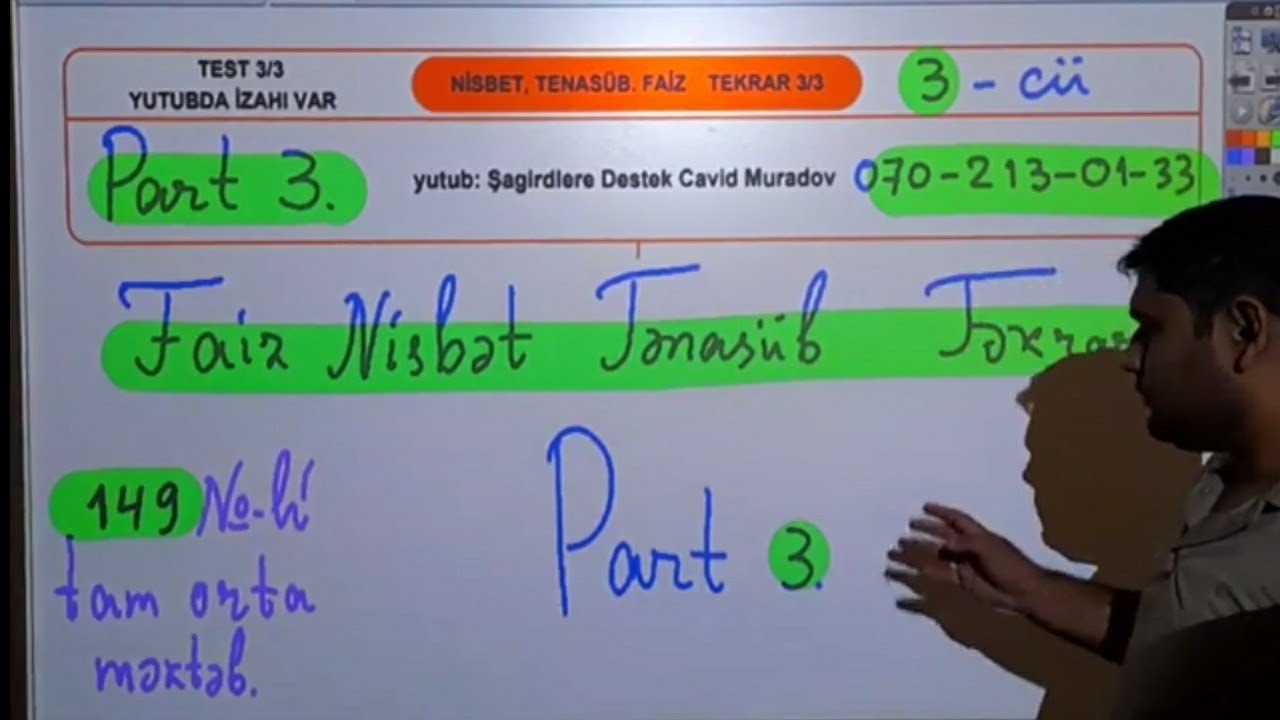 TEST 3/3
YUTUBDA İZAHI VAR
NİSBET, TENASÜB. FAİZ TEKRAR 3/3
3 - cü
Part 3.
yutub: Şagirdlere Destek Cavid Muradov
070-213-01-33
Faiz Nisbət Tənasüb Təkrar
149 №-li
tam orta
məktəb.
Part 3.